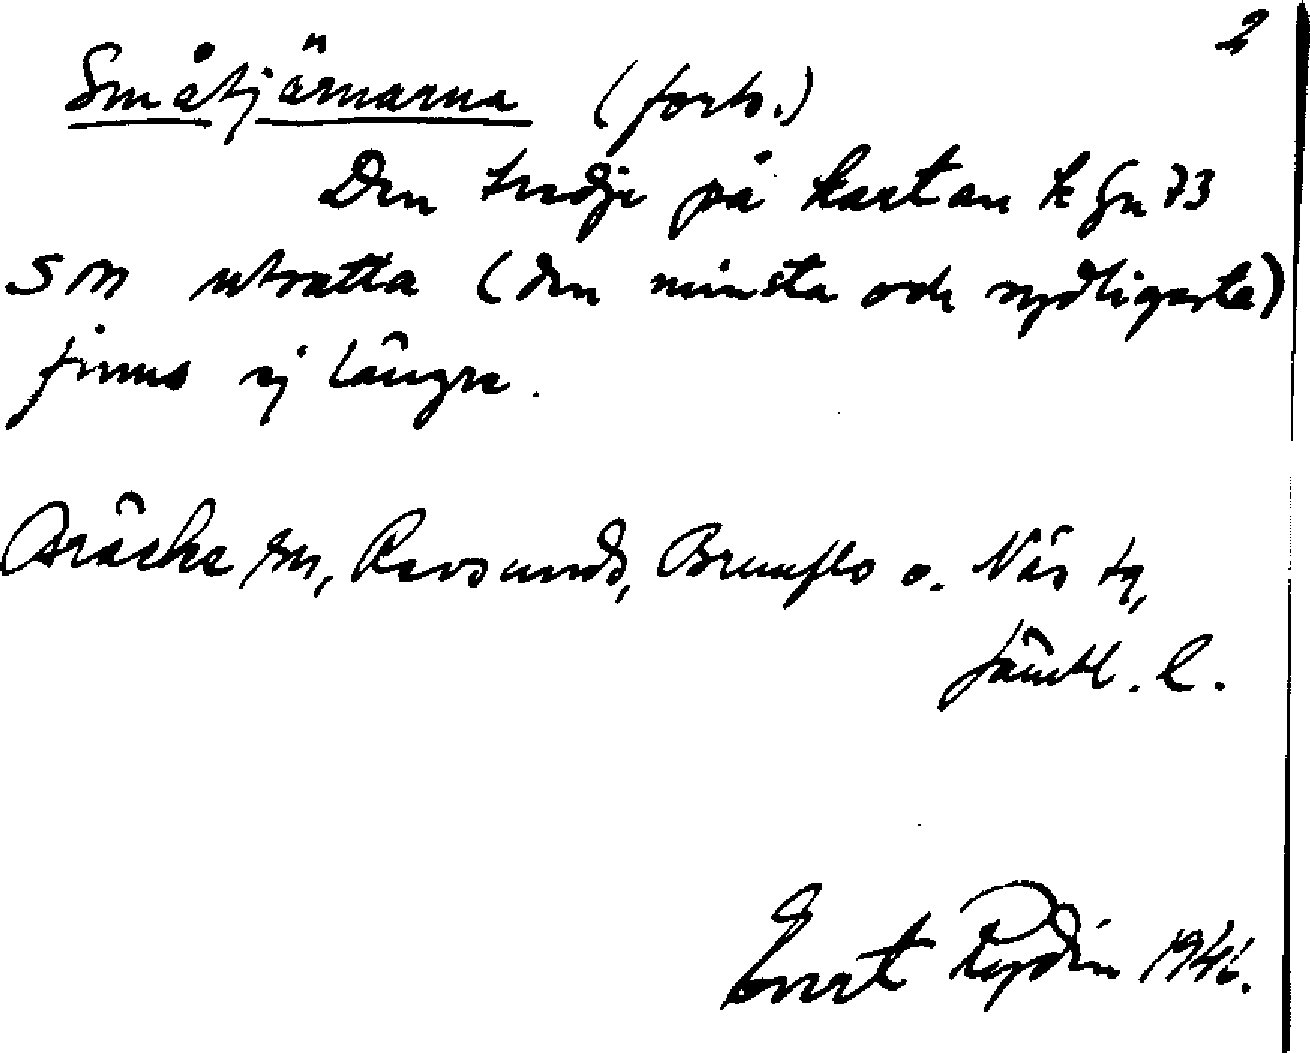 2
Småtjärnarna (forts.)
Den tredje på kartan k Gn 73
SM utsatta (den minsta och sydligaste)
finns ej längre.
Bräcke sn, Revsunds, Brunflo o. Näs tg,
Jämtl. l.
Evert Rydin 1946.